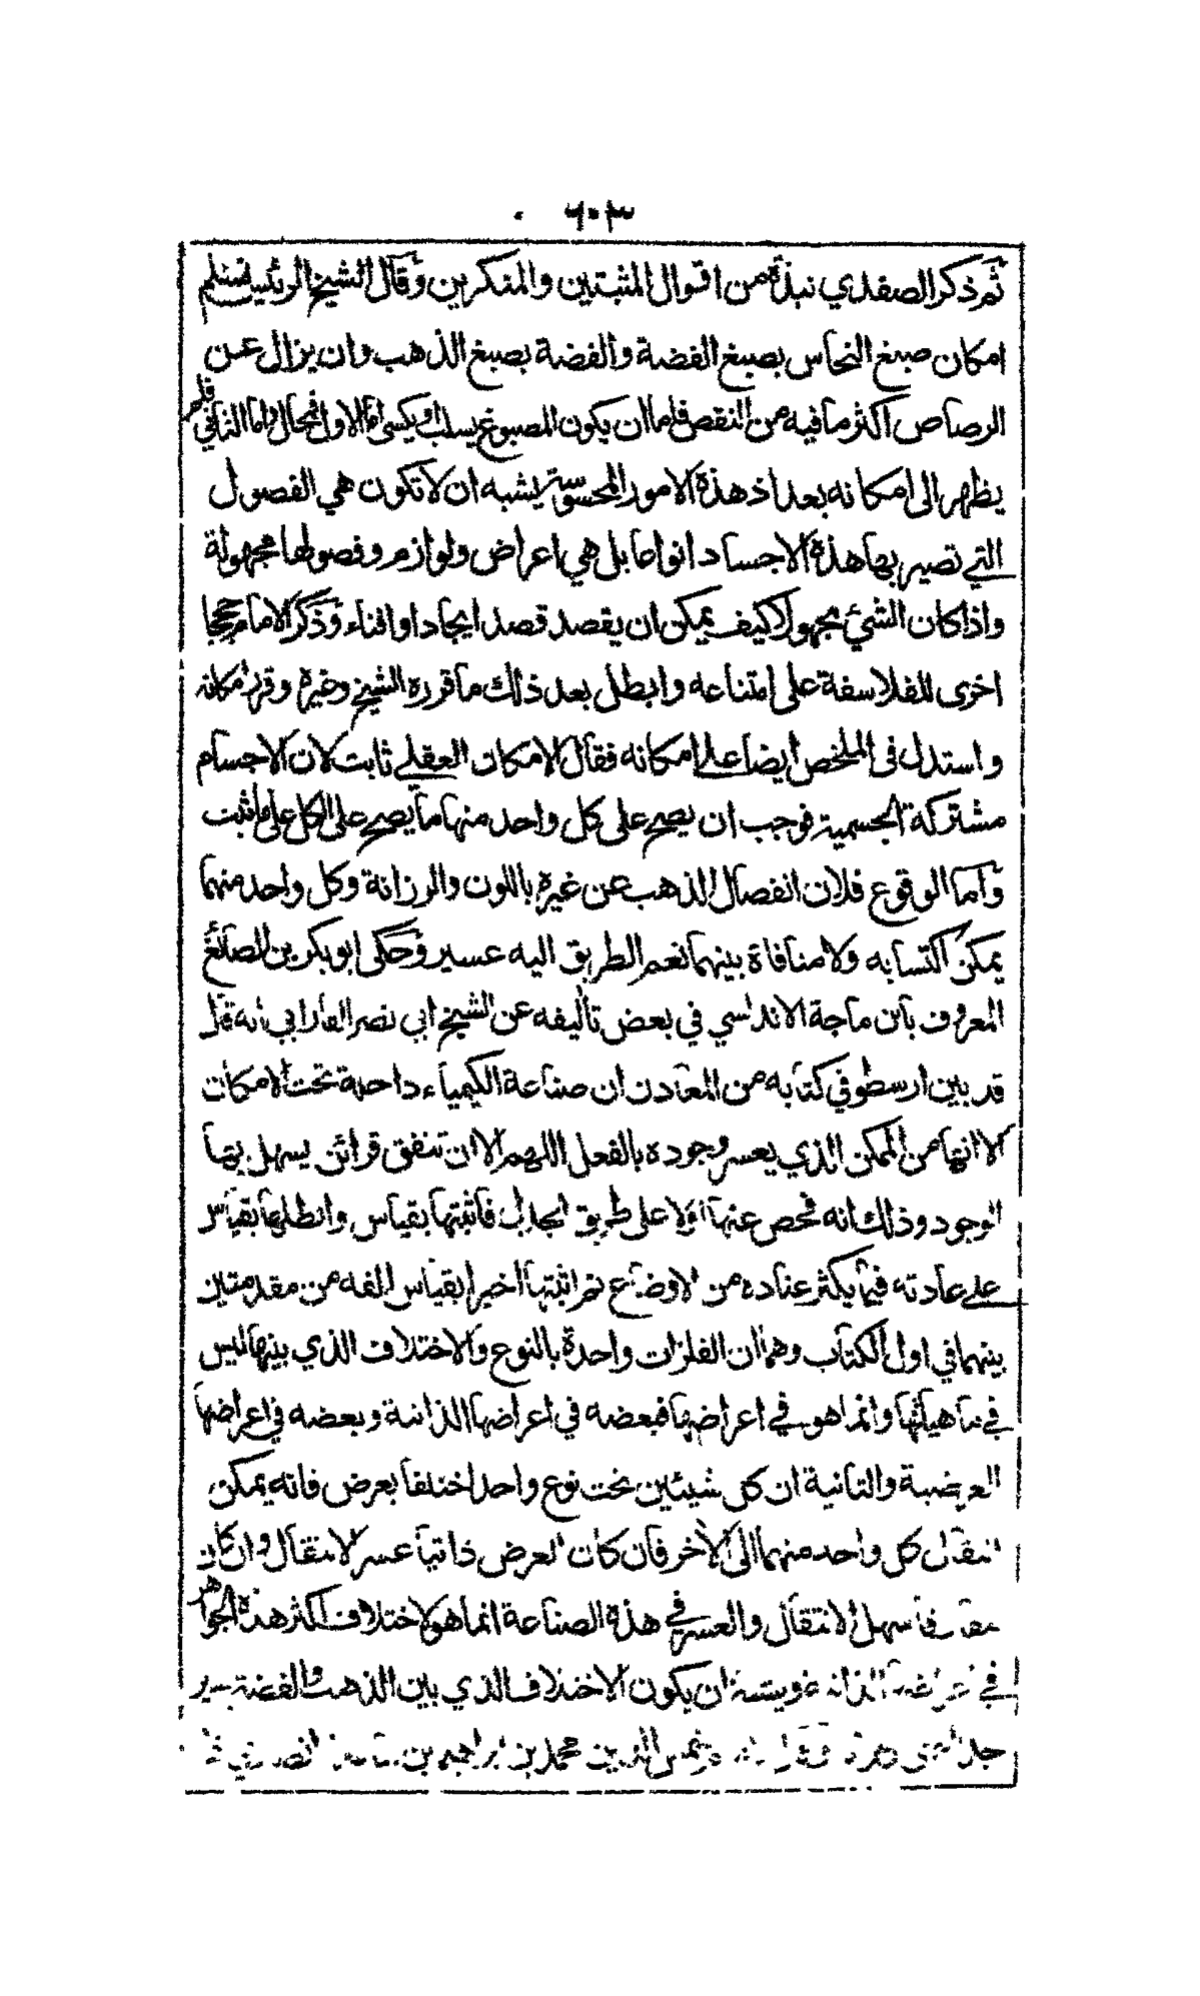 ٦٠٣
ثم ذكر الصفدي نبذة من اقوال المثبتين والمنكرين وقال الشيخ الرئيس نسلم
امكان صبغ النحاس بصبغ الفضة والفضة بصبغ الذهب وان يزال عن
الرصاص اكثر ما فيه من النقص فاما ان يكون المصبوغ يسلب ويكسى اما الاول فمحال واما الثاني فلم
يظهر الى امكانه بعد اذ هذه الامور المحسوسة يشبه ان لا تكون هي الفصول
التي تصير بها هذه الاجساد انواعا بل هي اعراض ولوازم وفصولها مجهولة
واذا كان الشيئ مجهولا كيف يمكن ان يقصد قصد ايجاد او افناء وذكر الامام حججا
اخرى للفلاسفة على امتناعه وابطل بعد ذلك ما قرره الشيخ وغيره وقرر امكانه
واستدل في الملخص ايضا على امكانه فقال الامكان العقلي ثابت لان الاجسام
مشتركة الجسمية فوجب ان يصح على كل واحد منها ما يصح على الكل على ما ثبت
واما الوقوع فلان انفصال الذهب عن غيره باللون والرزانة وكل واحد منهما
يمكن اكتسابه ولا منافاة بينهما نعم الطريق اليه عسير وحكى ابو بكر بن الصائغ
المعروف بابن ماجة الاندلسي في بعض تأليفه عن الشيخ ابي نصر الفارابي انه قال
قد بين ارسطو في كتابه من المعادن ان صناعة الكيمياء داخلة تحت الامكان
الا انها من الممكن الذي يعسر وجوده بالفعل اللهم الا ان تتفق قرائن يسهل بها
الوجود وذلك انه فحص عنها اولا على طريق الجدل فأثبتها بقياس وابطلها بقياس
على عادته فيما يكثر عناده من الاوضاع ثم اثبتها اخيرا بقياس الفه من مقدمتين
بينهما في اول الكتاب وهما ان الفلزات واحدة بالنوع والاختلاف الذي بينها ليس
في ماهياتها وانما هو في اعراضها فبعضه في اعراضها الذاتية وبعضه في اعراضها
العرضية والثانية ان كل شيئين تحت نوع واحد اختلفا بعرض فانه يمكن
انتقال كل واحد منهما الى الآخر فان كان العرض ذاتيا عسر الانتقال وان كان
مفارقا سهل الانتقال والعسر في هذه الصناعة انما هو لاختلاف اكثر هذه الجواهر
في اعراضها الذاتية ويشبه ان يكون الاختلاف الذي بين الذهب والفضة يسير
جدا شمس الدين محمد بن ابراهيم بن